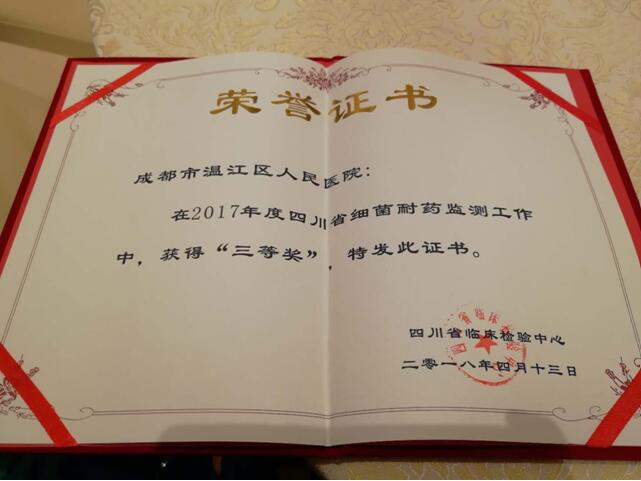 荣誉证书
成都市温江区人民医院：
在2017年度四川省细菌耐药监测工作
中，获得“三等奖”，特发此证书。
四川省临床检验中心
二零一八年四月十三日